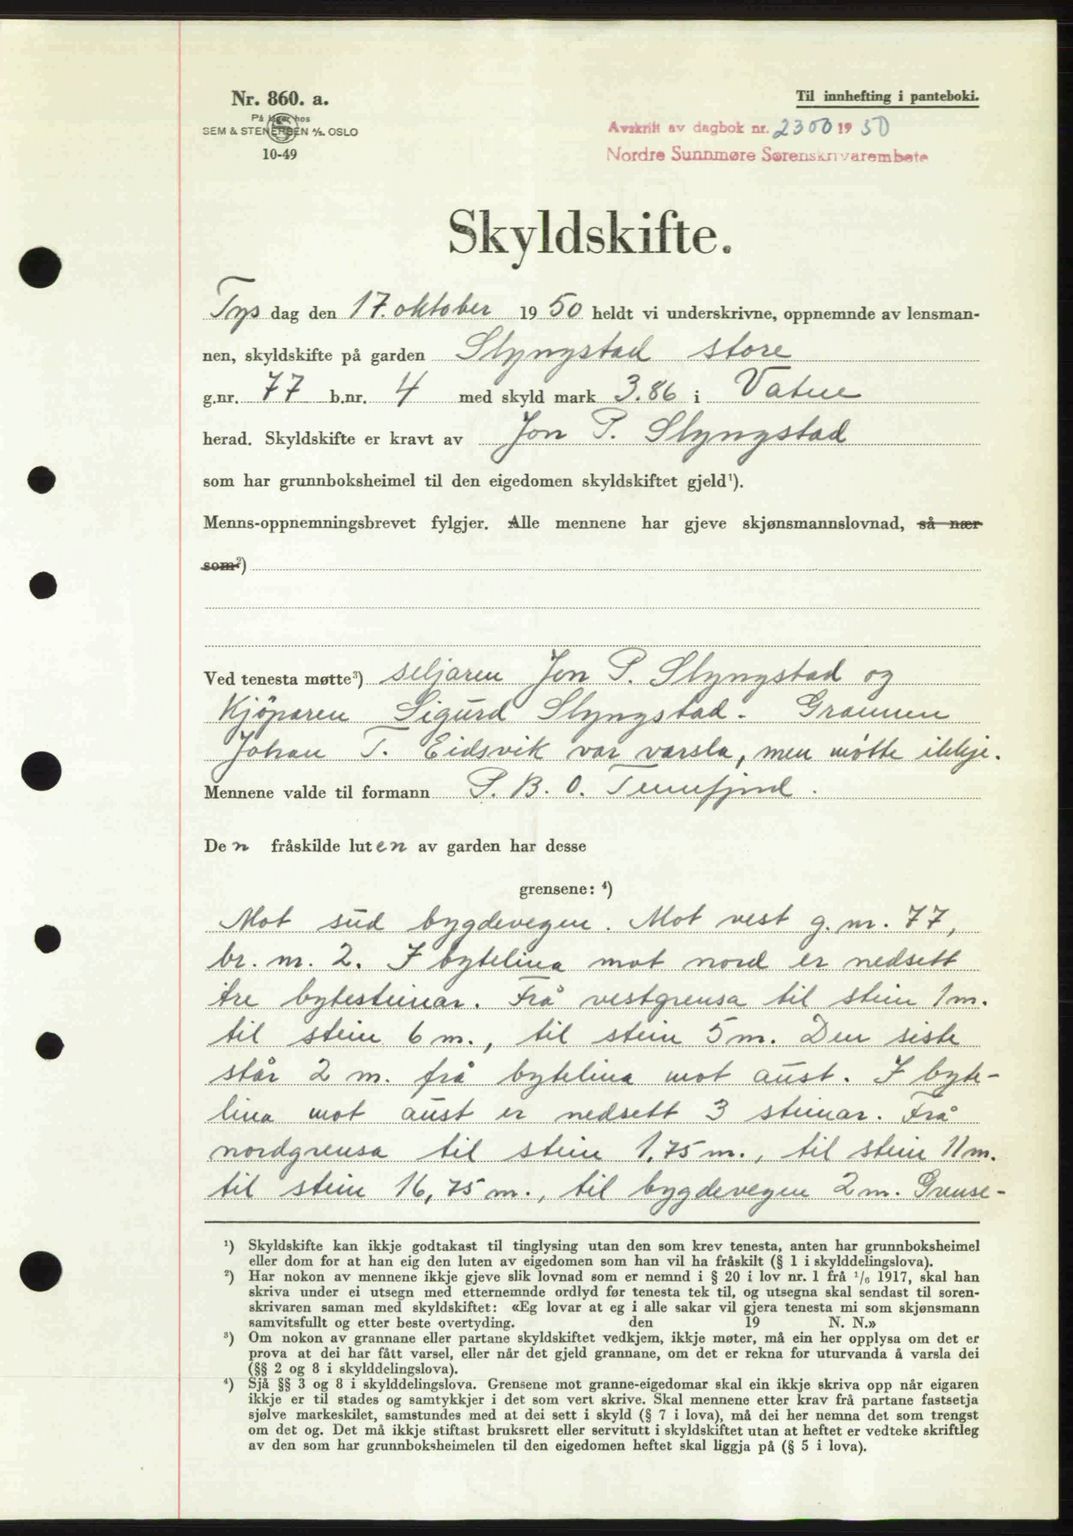 Nr. 860. a.
På lager hos
SEM & STENERSEN A/S. OSLO
10-49
Til innhefting i panteboki.
Avskrift av dagbok nr. 2300 19 50
Nordre Sunnmøre Sørenskrivarembete
Skyldskifte.
Tys dag den 17. oktober 19 50 heldt vi underskrivne, oppnemnde av lensman-
nen, skyldskifte på garden Slyngstad store
g.nr. 77 b.nr. 4 med skyld mark 3.86 i Vatne
herad. Skyldskifte er kravt av Jon P. Slyngstad
som har grunnboksheimel til den eigedomen skyldskiftet gjeld¹).
Menns-oppnemningsbrevet fylgjer. Alle mennene har gjeve skjønsmannslovnad, så nær
som²)
Ved tenesta møtte³) seljaren Jon P. Slyngstad og
Kjöparen Sigurd Slyngstad. Grannen
Johan T. Eidsvik var varsla, men møtte ikkje.
Mennene valde til formann P. B. O. Tennfjord.
Den fråskilde luten av garden har desse
grensene: ⁴)
Mot süd bygdevegen. Mot vest g. nr. 77,
br. nr. 2. I bytelina mot nord er nedsett
tre bytesteinar. Frå vestgrensa til stein 1 m.
til stein 6 m., til stein 5 m. Den siste
står 2 m. frå bytelina mot aust. I byte-
lina mot aust er nedsett 3 steinar. Frå
nordgrensa til stein 1,75 m., til stein 11 m.
til stein 16,75 m., til bygdevegen 2 m. Grense-
¹) Skyldskifte kan ikkje godtakast til tinglysing utan den som krev tenesta, anten har grunnboksheimel
eller dom for at han eig den luten av eigedomen som han vil ha fråskilt (§ 1 i skylddelingslova).
²) Har nokon av mennene ikkje gjeve slik lovnad som er nemnd i § 20 i lov nr. 1 frå 1/6 1917, skal han
skriva under ei utsegn med etternemnde ordlyd før tenesta tek til, og utsegna skal sendast til soren-
skrivaren saman med skyldskiftet: «Eg lovar at eg i alle sakar vil gjera tenesta mi som skjønsmann
samvitsfullt og etter beste overtyding. den 19 N. N.»
³) Om nokon av grannane eller partane skyldskiftet vedkjem, ikkje møter, må ein her opplysa om det er
prova at dei har fått varsel, eller når det gjeld grannane, om det er rekna for uturvanda å varsla dei
(§§ 2 og 8 i skylddelingslova).
⁴) Sjå §§ 3 og 8 i skylddelingslova. Grensene mot granne-eigedomar skal ein ikkje skriva opp når eigaren
ikkje er til stades og samtykkjer i det som vert skrive. Skal mennene etter krav frå partane fastsetja
sjølve markeskilet, samstundes med at dei sett i skyld (§ 7 i lova), må dei her nemna det som trengst
om det og. Det må ikkje stiftast bruksrett eller servitutt i skyldskiftet utan at heftet er vedteke skriftleg
av den som har grunnboksheimelen til den eigedomen heftet skal liggja på (§ 5 i lova).